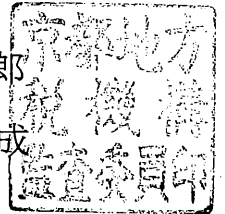 郎
成
京都地方
税機構
監査委員印